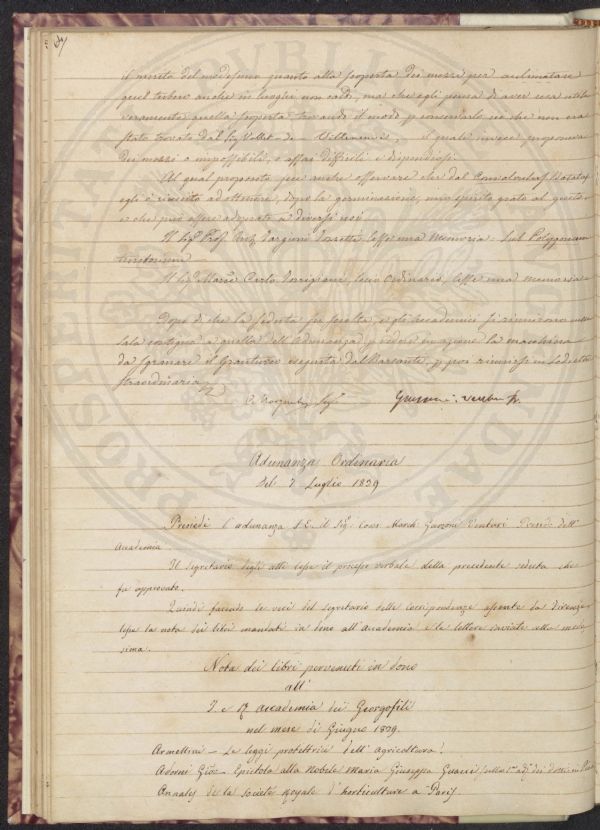 il merito del medesimo quanto alla proposta dei mezzi per acclimatare
quel tubero anche in luoghi non caldi, ma che egli pensa di aver resa utile
veramente quella proposta trovando il modo di conservarlo ciò che non era
stato trovato dal Sig. de il quale invece proponeva
dei mezzi o impossibili, o assai difficili e dispendiosi.
Al qual proposito fece anche osservare che dal Convolvulus Batatas
egli è riuscito ad ottenere, dopo la germinazione, uno spirito grato al gusto
e che può essere adoprato a diversi usi
Il Sig. Prof. Targioni Tozzetti lesse una Memoria Sul Polygonum
tinctorium
Il Sig. March. Carlo Torrigiani, Socio Ordinario, lesse una memoria
Dopo di che la seduta fu sciolta, e gli Accademici si riunirono nella
Sala contigua a quella dell'Adunanza, p. vedere in azione la macchina
da sgranare il Granturco eseguita dal p. poi riunirsi in seduta
straordinaria
Adunanza Ordinaria
Del 7 Luglio 1839
Presiede l'adunanza S.E. il Sig. Cons. March. Garzoni Venturi Presid. dell'
Accademia
Il Segretario degli atti lesse il processo verbale della precedente seduta che
fu approvato.
Quindi facendo le veci del segretario delle corrispondenze assente da Firenze
lesse la nota dei libri mandati in dono all'Accademia e le lettere inviate alla mede-
sima.
Nota dei libri pervenuti in dono
all'
I. e R. Accademia dei Georgofili
nel mese di Giugno 1839.
Armellini — Le leggi protettrici dell'agricoltura.
Adorni Gioe — Epistola alla Nobile Maria Giuseppa Guacci
Annales de la Societé Royale d'horticulture a Paris